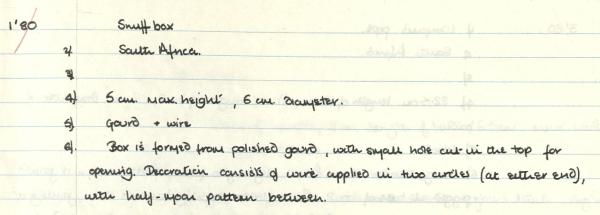 1'80 Snuff box
2/ South Africa.
3/
4) 5 cm. max. height, 6 cm diameter.
5) Gourd + wire
6). Box is formed from polished gourd, with small hole cut in the top for
opening. Decoration consists of wire applied in two circles (at either end),
with half-moon pattern between.